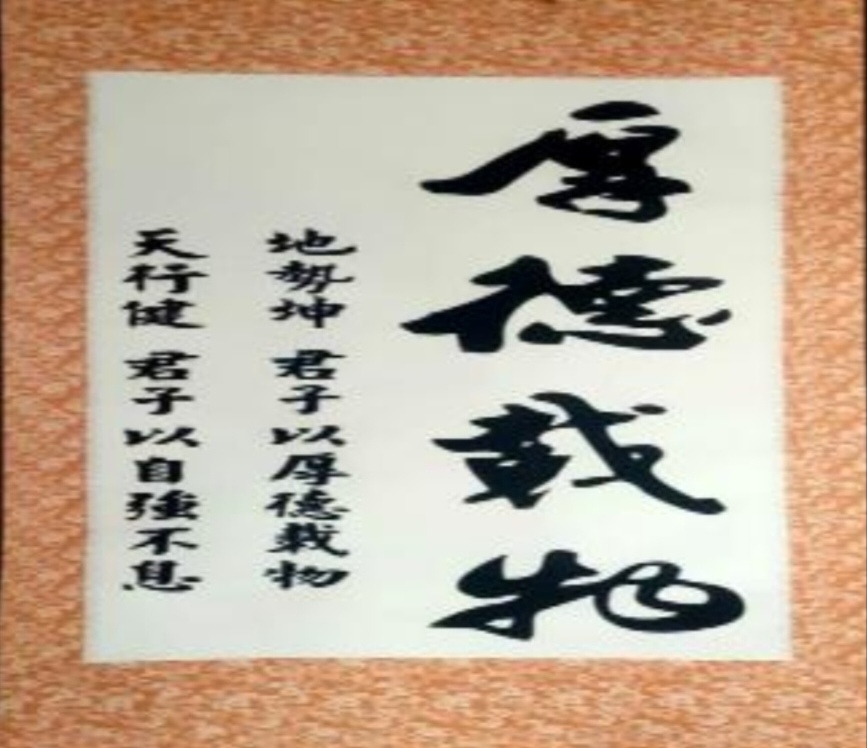 厚德載物
地勢坤 君子以厚德載物
天行健 君子以自強不息